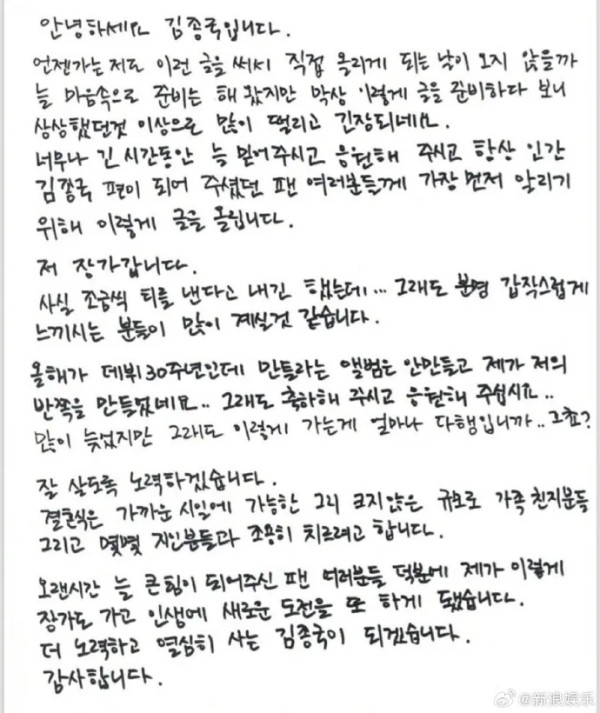 안녕하세요 김종국입니다.
언젠가는 저도 이런 글을 써서 직접 올리게 되는 날이 오지 않을까
늘 마음속으로 준비는 해 왔지만 막상 이렇게 글을 준비하다 보니
상상했던것 이상으로 많이 떨리고 긴장되네요.
너무나 긴 시간동안 늘 믿어주시고 응원해 주시고 항상 인간
김종국 편이 되어 주셨던 팬 여러분들께 가장 먼저 알리기
위해 이렇게 글을 올립니다.
저 장가갑니다.
사실 조금씩 티를 낸다고 내긴 했는데... 그래도 분명 갑작스럽게
느끼시는 분들이 많이 계실것 같습니다.
올해가 데뷔 30주년인데 만들라는 앨범은 안만들고 제가 저의
반쪽을 만들었네요.. 그래도 축하해 주시고 응원해 주십시요..
많이 늦었지만 그래도 이렇게 가는게 얼마나 다행입니까.. 그쵸?
잘 살도록 노력하겠습니다.
결혼식은 가까운 시일에 가능한 그리 크지않은 규모로 가족 친지분들
그리고 몇몇 지인분들과 조용히 치르려고 합니다.
오랜시간 늘 큰힘이 되어주신 팬 여러분들 덕분에 제가 이렇게
장가도 가고 인생에 새로운 도전을 또 하게 됐습니다.
더 노력하고 열심히 사는 김종국이 되겠습니다.
감사합니다.
@新浪娱乐